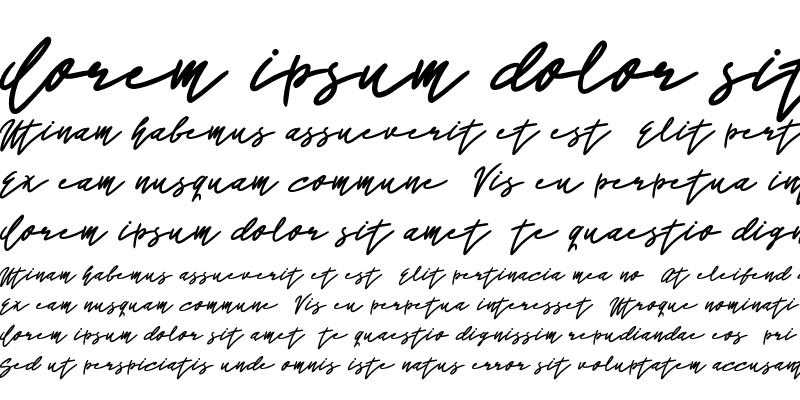 lorem ipsum dolor sit
Utinam habemus assueverit et est Elit pert
Ex eam nusquam commune Vis eu perpetua in
lorem ipsum dolor sit amet te quaestio dign
Utinam habemus assueverit et est Elit pertinacia mea no At eleifend
Ex eam nusquam commune Vis eu perpetua interesset Utroque nominati
lorem ipsum dolor sit amet te quaestio dignissim repudiandae eos pri
Sed ut perspiciatis unde omnis iste natus error sit voluptatem accusant